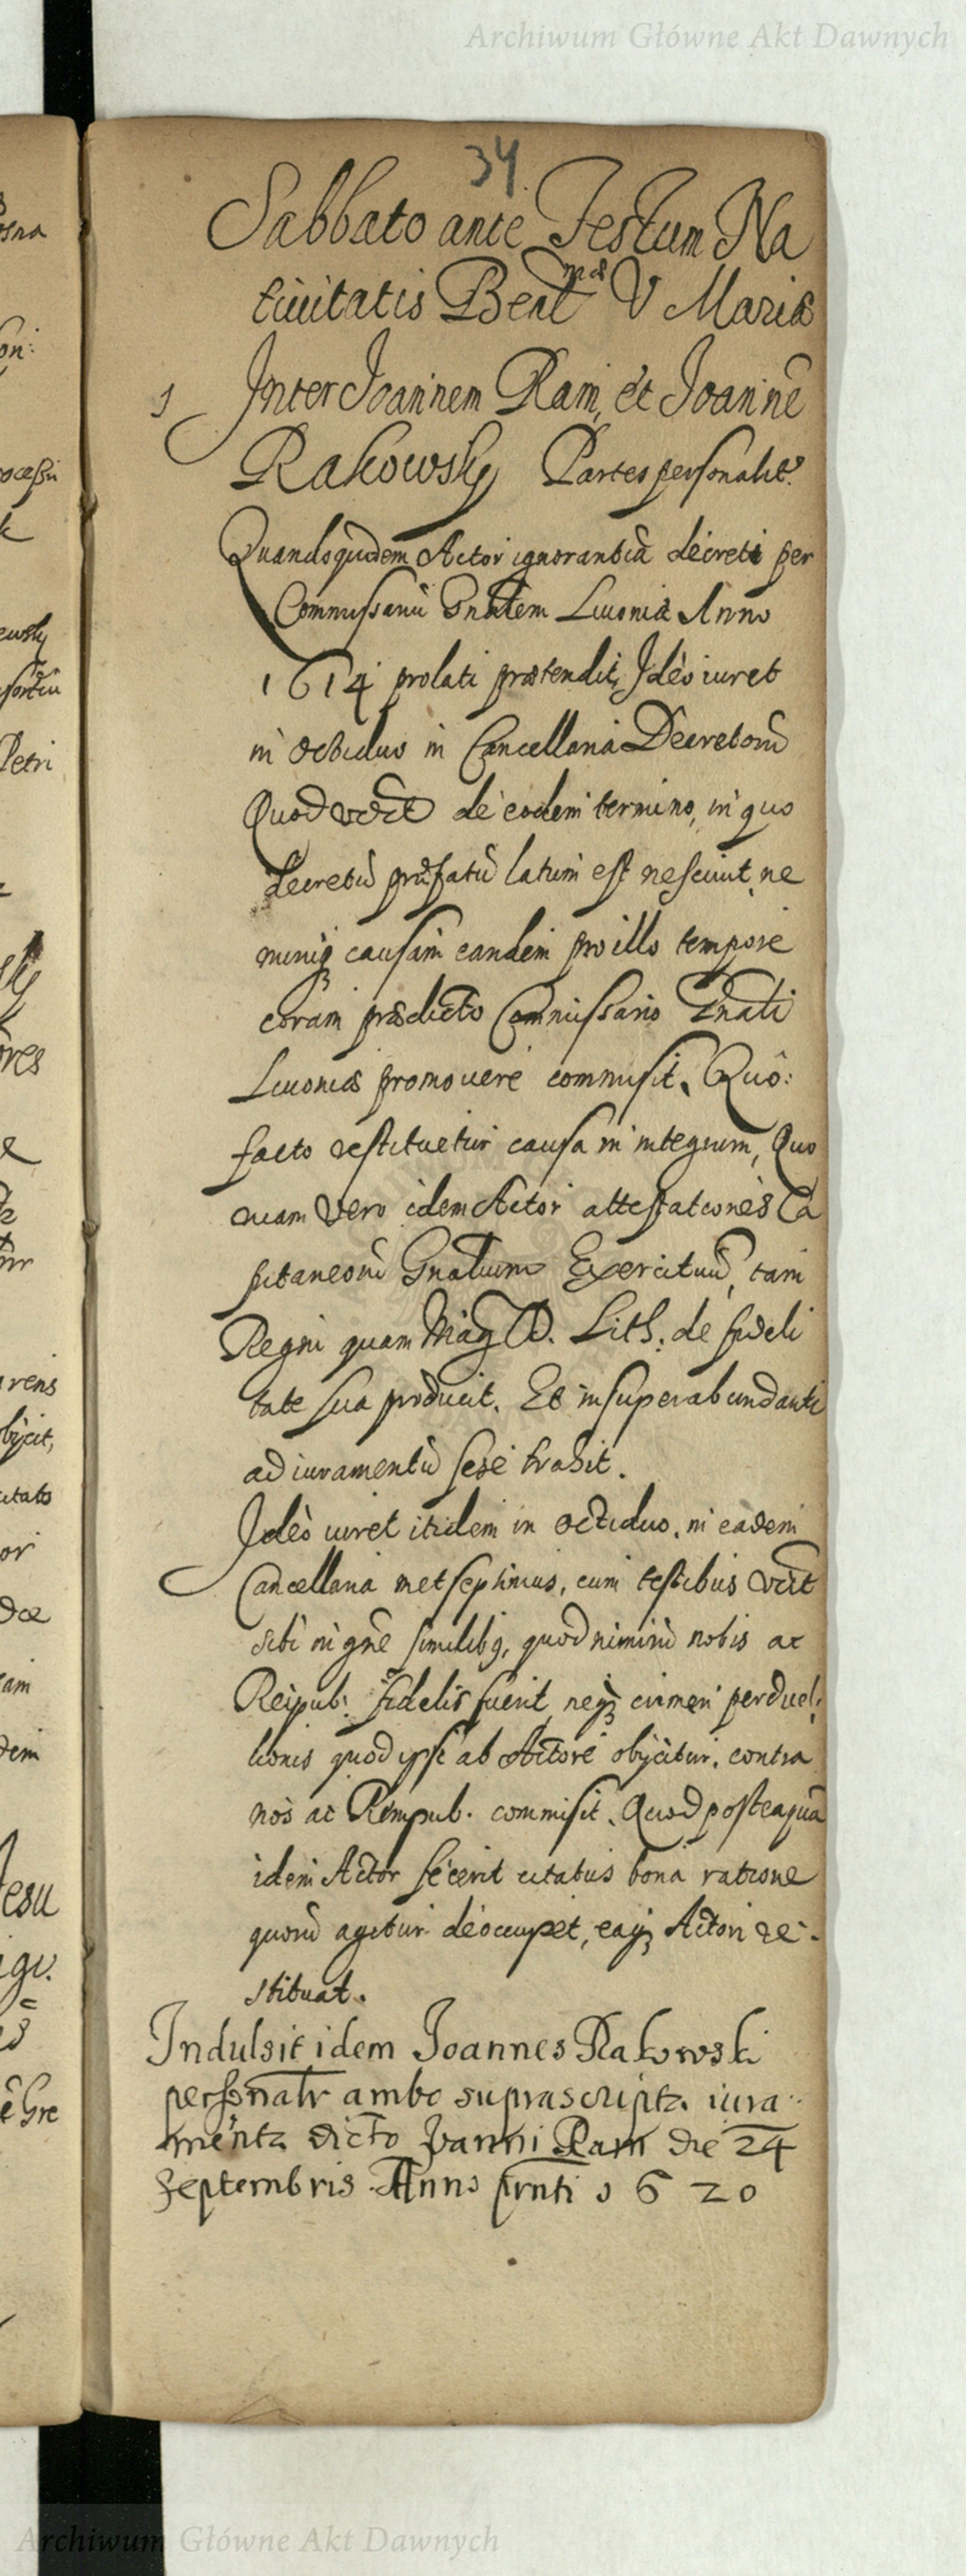 Archiwum Główne Akt Dawnych
34
Sabbato ante Festum Na
tiuitatis Beatmæ V Mariæ
1 Inter Joannem Ram, et Joannē
Rakowsky Partes personalitr
Quandoquidem Actor ignorantiā decreti per
Commissariū Gnalem Liuoniæ Anno
1614 prolati prætendit, Ideo iuret
in octiduo in Cancellaria Decretorū
Quod de eodem termino, in quo
decretū præfatū latum est nesciuit, ne
miniq causam eandem pro illo tempore
coram prædicto Commissario Gnali
Liuoniæ promouere commisit. Quo:
facto restituetur causa in integrum, Quo
niam vero idem Actor attestationes Ca
pitaneorū Gnalium Exercituū, tam
Regni quam Mag D. Lith: de fideli
tate sua producit. Et in superabundanti
ad iuramentū sese trahit.
Ideo iuret itidem in octiduo, in eadem
Cancellaria metseptimus, cum testibus
sibi in gñe similibq, quod nimirū nobis ac
Reipub: fidelis fuerit, neq crimen perduel:
lionis quod ipsi ab Actore obijcitur, contra
nos ac Rempub. commisit. Quod posteaquā
idem Actor fecerit citatus bona ratione
quorū agitur deoccupet, eaq Actori re-
stituat.
Indulsit idem Joannes Rakowski
personalr ambo suprascripta iura-
menta dicto Joanni Ram die 24
Septembris Anno prnti 1620
osna
on:
ocessu
Petri
ores
rens
bijcit,
citato
or
dæ
am
dem
Jesu
igi.
Gre
Archiwum Główne Akt Dawnych